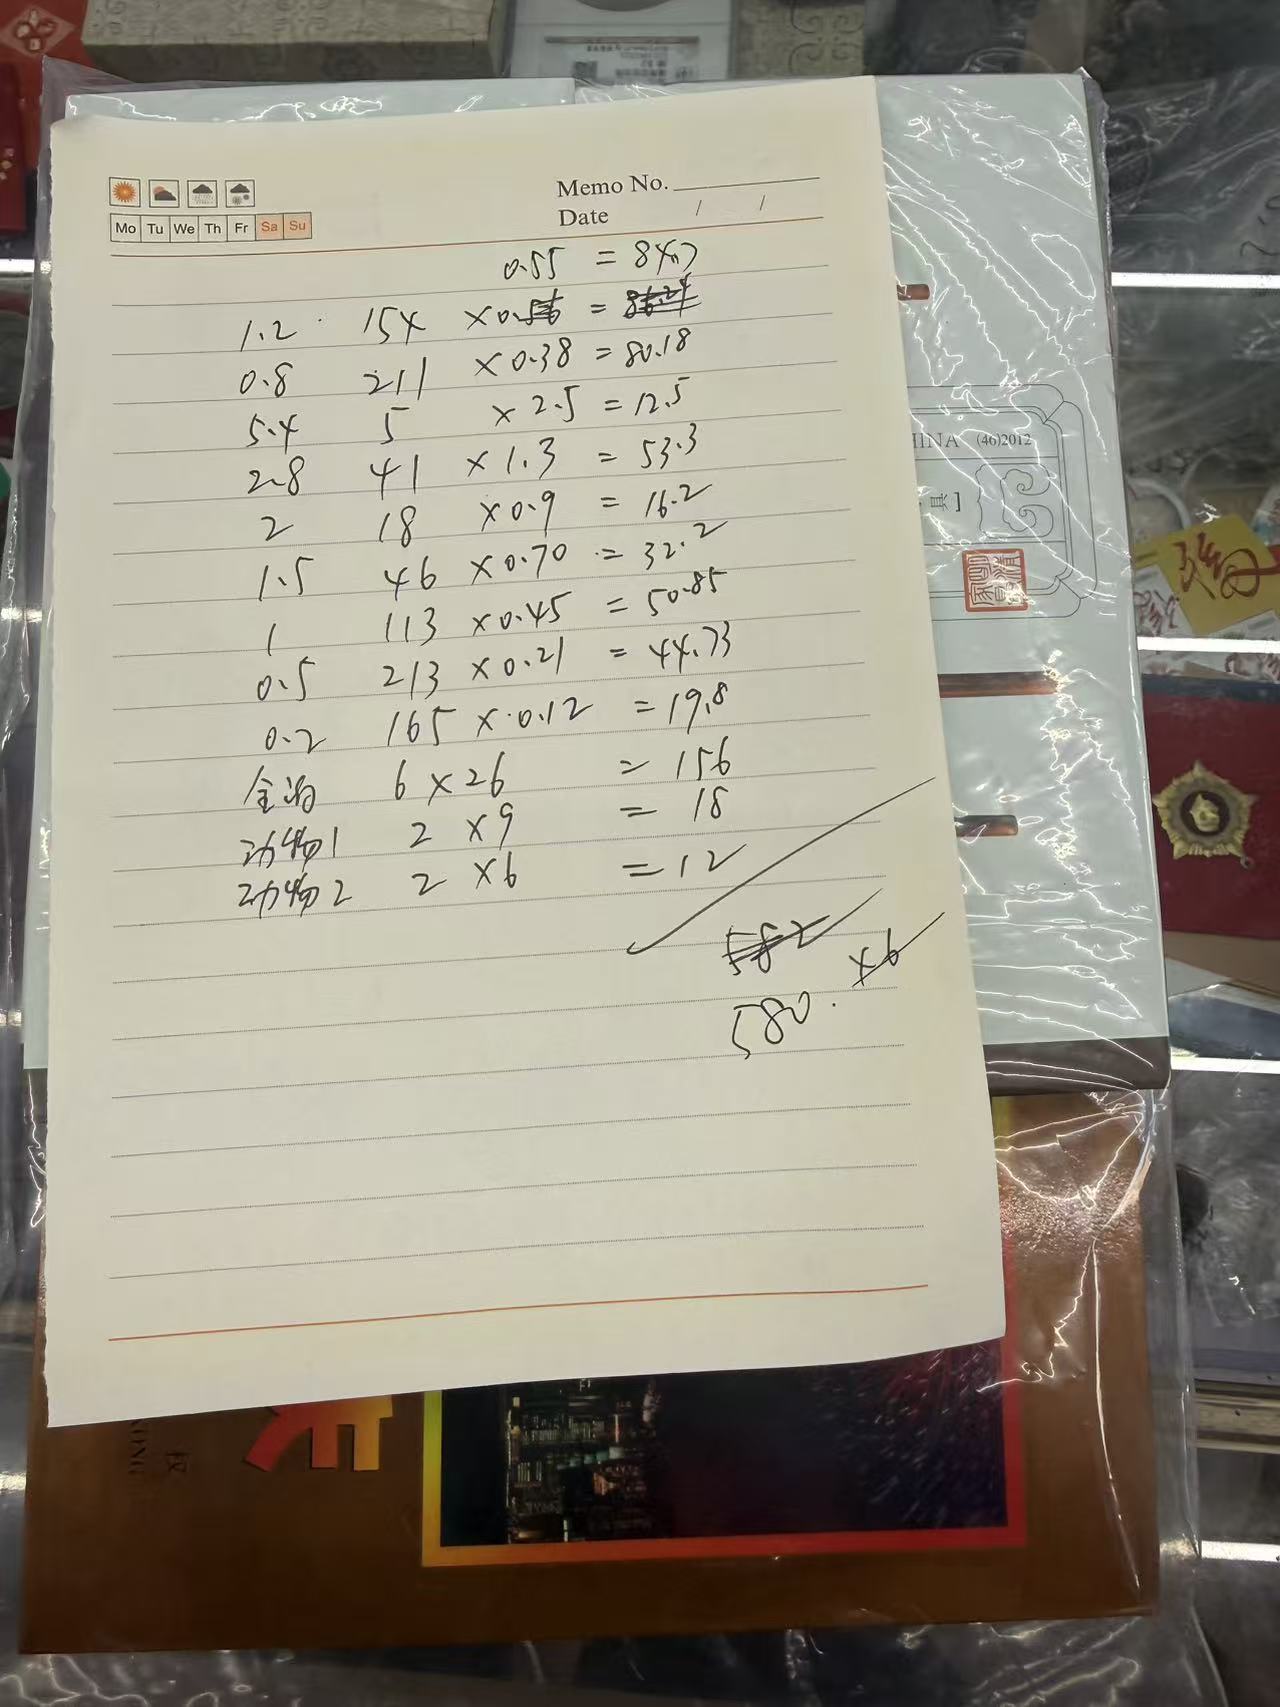 Memo No.
Date / /
Mo Tu We Th Fr Sa Su
0.55 = 84.7
1.2 154 ×0.56 = 86.24
0.8 211 ×0.38 = 80.18
5.4 5 ×2.5 = 12.5
2.8 41 ×1.3 = 53.3
2 18 ×0.9 = 16.2
1.5 46 ×0.70 = 32.2
1 113 ×0.45 = 50.85
0.5 213 ×0.21 = 44.73
0.2 165 ×0.12 = 19.8
6 ×26 = 156
动物1 2 ×9 = 18
动物2 2 ×6 = 12
582
×6
580.
(46)2012
具]